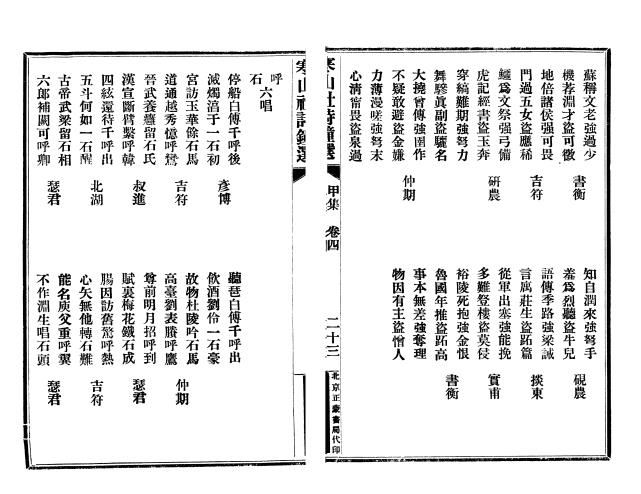 蘇稱文老強過少
機荐淵才盜可徵
書衡
地倍諸侯強可畏
門過五女盜應稀
吉符
鱷為文祭强弓備
虎記經書盜玉奔
研農
穿縞難期強弩力
舞驂眞副盜驪名
大撓曾傳強圉作
不疑敢避盜金嫌
仲期
力薄漫嗟強弩末
心淸甯畏盜泉過
知自潤來強弩手
羞為烈聽盜牛兒
硯農
語傳季路強梁誡
言寓莊生盜跖篇
掞東
從軍出塞強能挽
多難登樓盜莫侵
實甫
裕陵死抱強金恨
魯國年推盜跖高
書衡
事本無差強奪理
物因有主盜憎人
寒山社詩鐘選
甲集
卷四
二十三
北京正蒙書局代印
寒山社詩鐘選
呼
石
六唱
停船白傅千呼後
滅燭淳于一石初
彥博
宮訪玉華餘石馬
道通越秀憶呼鸞
吉符
晉武養癰留石氏
漢宣斷臂繫呼韓
叔進
四絃還待千呼出
五斗何如一石醒
北湖
古帝武梁留石相
六郎補闕可呼卿
瑟君
聽琶白傅千呼出
飲酒劉伶一石豪
故物杜陵吟石馬
高臺劉表勝呼鷹
仲期
尊前明月招呼到
賦裏梅花鐵石成
叔進
腸因訪舊驚呼熱
心矢無他轉石難
吉符
能名庾父重呼翼
不作淵生唱石頭
瑟君